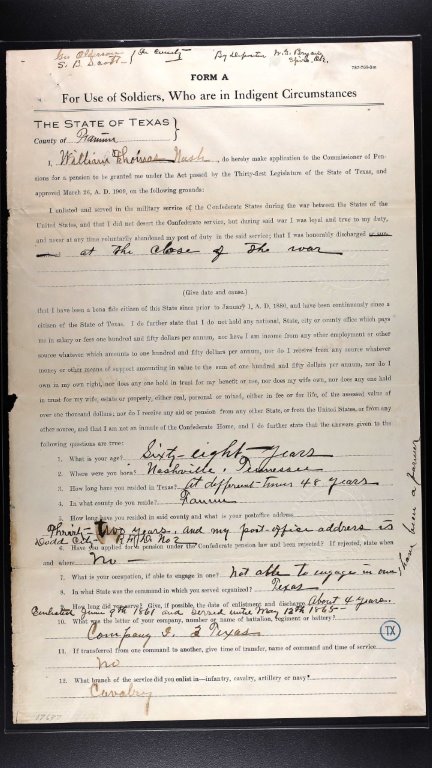 Geo Alderson
S. B. Scott
of the County
By Deposition W. G. Bryant
Spiro, Ok.
757-709-3m
FORM A
For Use of Soldiers, Who are in Indigent Circumstances
THE STATE OF TEXAS
County of Fannin
I, William Thomas Nash, do hereby make application to the Commissioner of Pen-
sions for a pension to be granted me under the Act passed by the Thirty-first Legislature of the State of Texas, and
approved March 26, A. D. 1909, on the following grounds:
I enlisted and served in the military service of the Confederate States during the war between the States of the
United States, and that I did not desert the Confederate service, but during said war I was loyal and true to my duty,
and never at any time voluntarily abandoned my post of duty in the said service; that I was honorably discharged
at the close of the war
(Give date and cause.)
that I have been a bona fide citizen of this State since prior to January 1, A. D. 1880, and have been continuously since a
citizen of the State of Texas. I do further state that I do not hold any national, State, city or county office which pays
me in salary or fees one hundred and fifty dollars per annum, nor have I an income from any other employment or other
source whatever which amounts to one hundred and fifty dollars per annum, nor do I receive from any source whatever
money or other means of support amounting in value to the sum of one hundred and fifty dollars per annum, nor do I
own in my own right, nor does any one hold in trust for my benefit or use, nor does my wife own, nor does any one hold
in trust for my wife, estate or property, either real, personal or mixed, either in fee or for life, of the assessed value of
over one thousand dollars; nor do I receive any aid or pension from any other State, or from the United States, or from any
other source, and that I am not an inmate of the Confederate Home, and I do further state that the answers given to the
following questions are true:
1. What is your age? Sixty-eight years
2. Where were you born? Nashville, Tennessee
3. How long have you resided in Texas? At different times 48 years
4. In what county do you reside? Fannin
5. How long have you resided in said county and what is your postoffice address
Thirty-two years, and my post-office address is
Dodd City R.F.D. No 2
6. Have you applied for a pension under the Confederate pension law and been rejected? If rejected, state when
and where No -
7. What is your occupation, if able to engage in one? Not able to engage in one
- have been a farmer
8. In what State was the command in which you served organized? Texas
9. How long did you serve? Give, if possible, the date of enlistment and discharge About 4 years.
Enlisted June 9th 1861 and served until May 12th 1865-
10. What was the letter of your company, number or name of battalion, regiment or battery?
Company I. 3 Texas
11. If transferred from one command to another, give time of transfer, name of command and time of service
No
12. What branch of the service did you enlist in—infantry, cavalry, artillery or navy?
Cavalry
TX